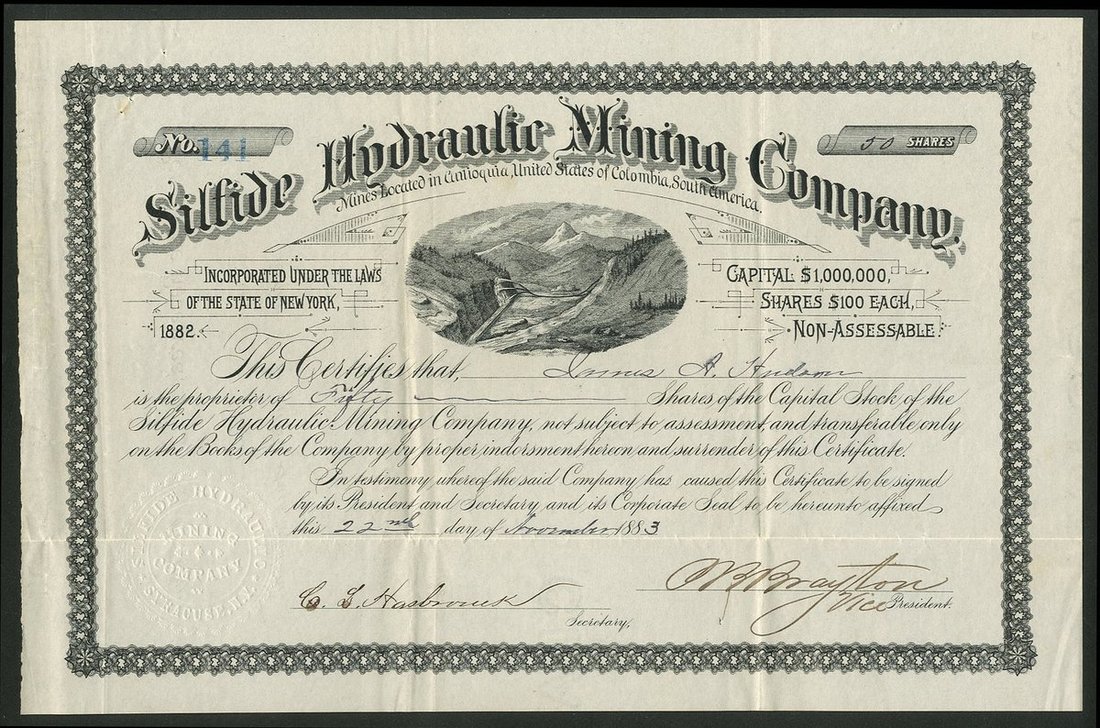 No. 141
50 SHARES
Silfide Hydraulic Mining Company.
Mines Located in Antioquia, United States of Colombia, South America.
INCORPORATED UNDER THE LAWS
OF THE STATE OF NEW YORK,
1882.
CAPITAL $1,000,000,
SHARES $100 EACH,
NON-ASSESSABLE.
This Certifies that, James A. Hudson
is the proprietor of Fifty Shares of the Capital Stock of the
Silfide Hydraulic Mining Company, not subject to assessment, and transferable only
on the Books of the Company by proper indorsment hereon and surrender of this Certificate.
In testimony whereof the said Company has caused this Certificate to be signed
by its President and Secretary, and its Corporate Seal to be hereunto affixed
this 22nd day of November 1883
SILFIDE HYDRAULIC
MINING
COMPANY
SYRACUSE, N.Y.
C. L. Hasbrouck
Secretary,
W B Brayton
Vice President.